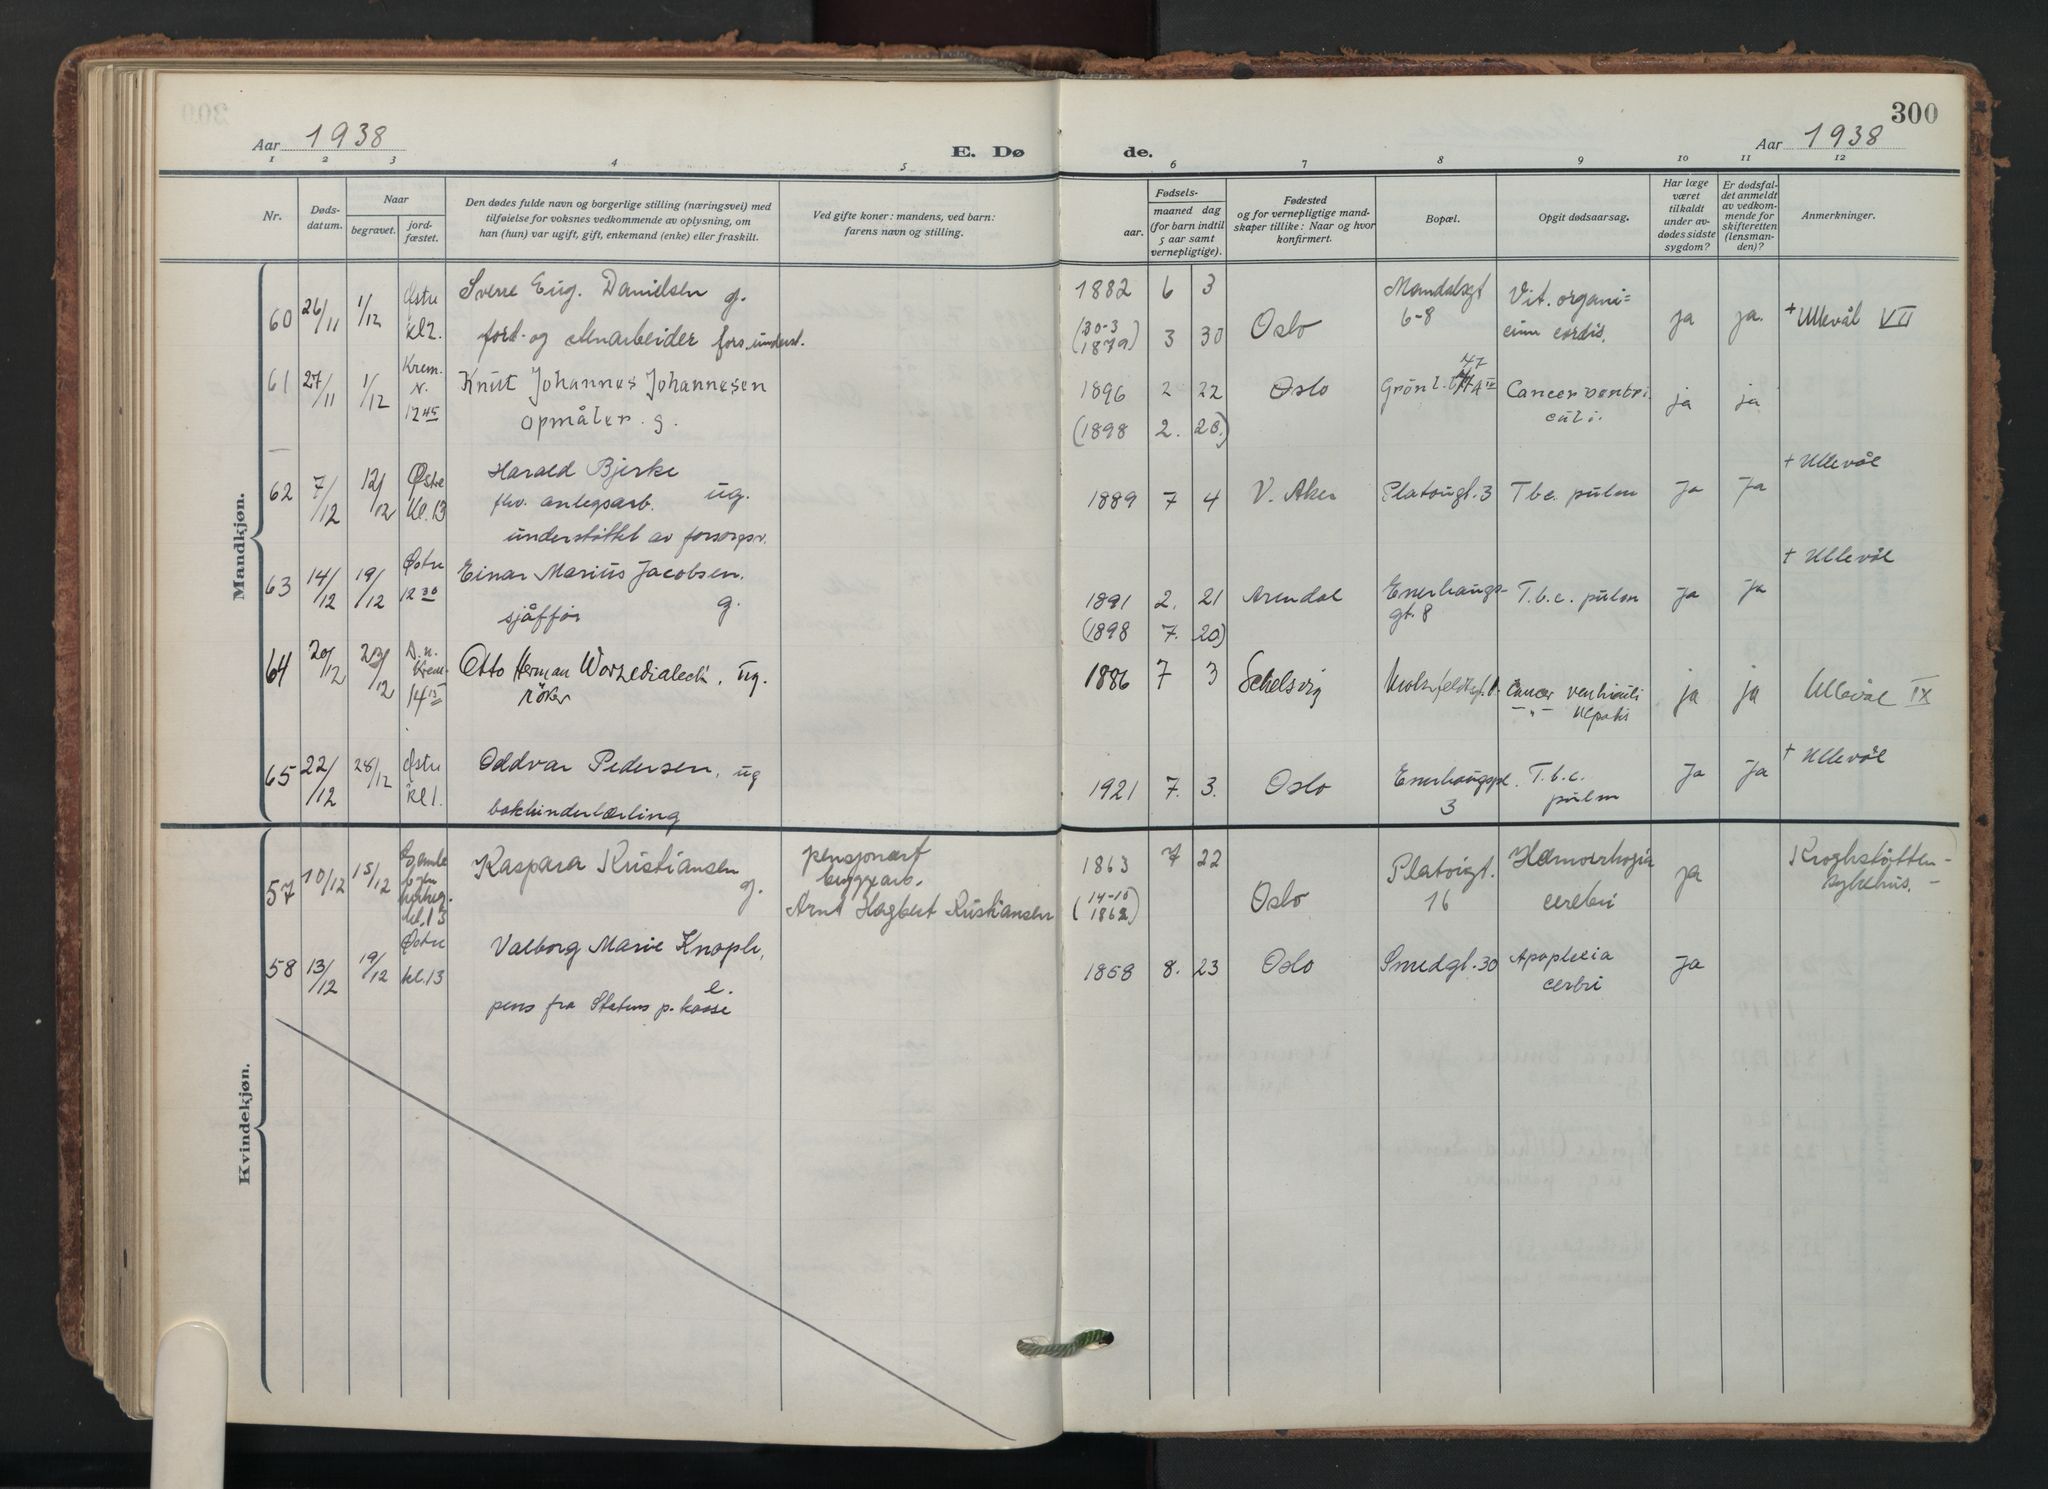 300
Aar 1938
E. Dø
de.
Aar 1938
1 2 3 4 5 6 7 8 9 10 11 12
Nr.
Døds-
datum.
Naar
begravet.
jord-
fæstet.
Den dødes fulde navn og borgerlige stilling (næringsvei) med
tilføielse for voksnes vedkommende av oplysning, om
han (hun) var ugift, gift, enkemand (enke) eller fraskilt.
Ved gifte koner: mandens, ved barn:
farens navn og stilling.
Fødsels-
aar.
maaned dag
(for barn indtil
5 aar samt
vernepligtige).
Fødested
og for vernepligtige mand-
skaper tillike: Naar og hvor
konfirmert.
Bopæl.
Opgit dødsaarsag.
Har læge
været
tilkaldt
under av-
dødes sidste
sygdom?
Er dødsfal-
det anmeldt
av vedkom-
mende for
skifteretten
(lensman-
den)?
Anmerkninger.
Mandkjøn.
60 26/11 1/12 Østre kl 2. Sverre Eug. Danielsen g. 1882 6 3 Oslo Mandalsgt 6-8 Vit. organi=
cum cordis. ja ja. + Ullevål VII
(30-3 1879) 3 30
61 27/11 1/12 Krem. 12 45 Knut Johannes Johannesen 1896 2 22 Oslo Grønl. Cancer ventri.
culi. ja ja
opmåler. g. (1898 2. 20.)
62 7/12 12/12 Østre kl. 13 Harald Bjerke ug. 1889 7 4 V. Aker Platougt. 3 Tbc. pulm ja ja + Ullevål
fhv. anlegsarb.
understøttet av forsorgsv.
63 14/12 19/12 Østre 12 30 Einar Marius Jacobsen. g. 1891 2. 21 Arendal Enerhaugs-
gt. 8 T.b.c. pulm ja ja + Ullevål
sjåffør (1898 7. 20)
64 20/12 23/12 D. n. krem. 14 15 Otto Herman ug. 1886 7 3 Cancer ventriculi
-"- ja ja Ullevål IX
65 22/12 28/12 Østre kl 1. Oddvar Pedersen, ug 1921 7. 3. Oslo Enerhaugspl.
3 T.b.c.
pulm ja ja + Ullevål
bokbinderlærling
Kvindekjøn.
57 10/12 15/12 Gamle kl. 13 Kaspara Kristiansen g. pensjonert
byggearb.
Arnt Hagbert Kristiansen 1863 7 22 Oslo Platougt.
16 Hæmorrhagia
cerebri ja Kroghstøtten-
sykehus.
(14-10 1862)
58 13/12 19/12 Østre kl. 13 Valborg Marie Knoph, e. 1858 8. 23 Oslo Smedgt. 30 Apoplexia
cerbri ja
pens fra Statens p. kasse